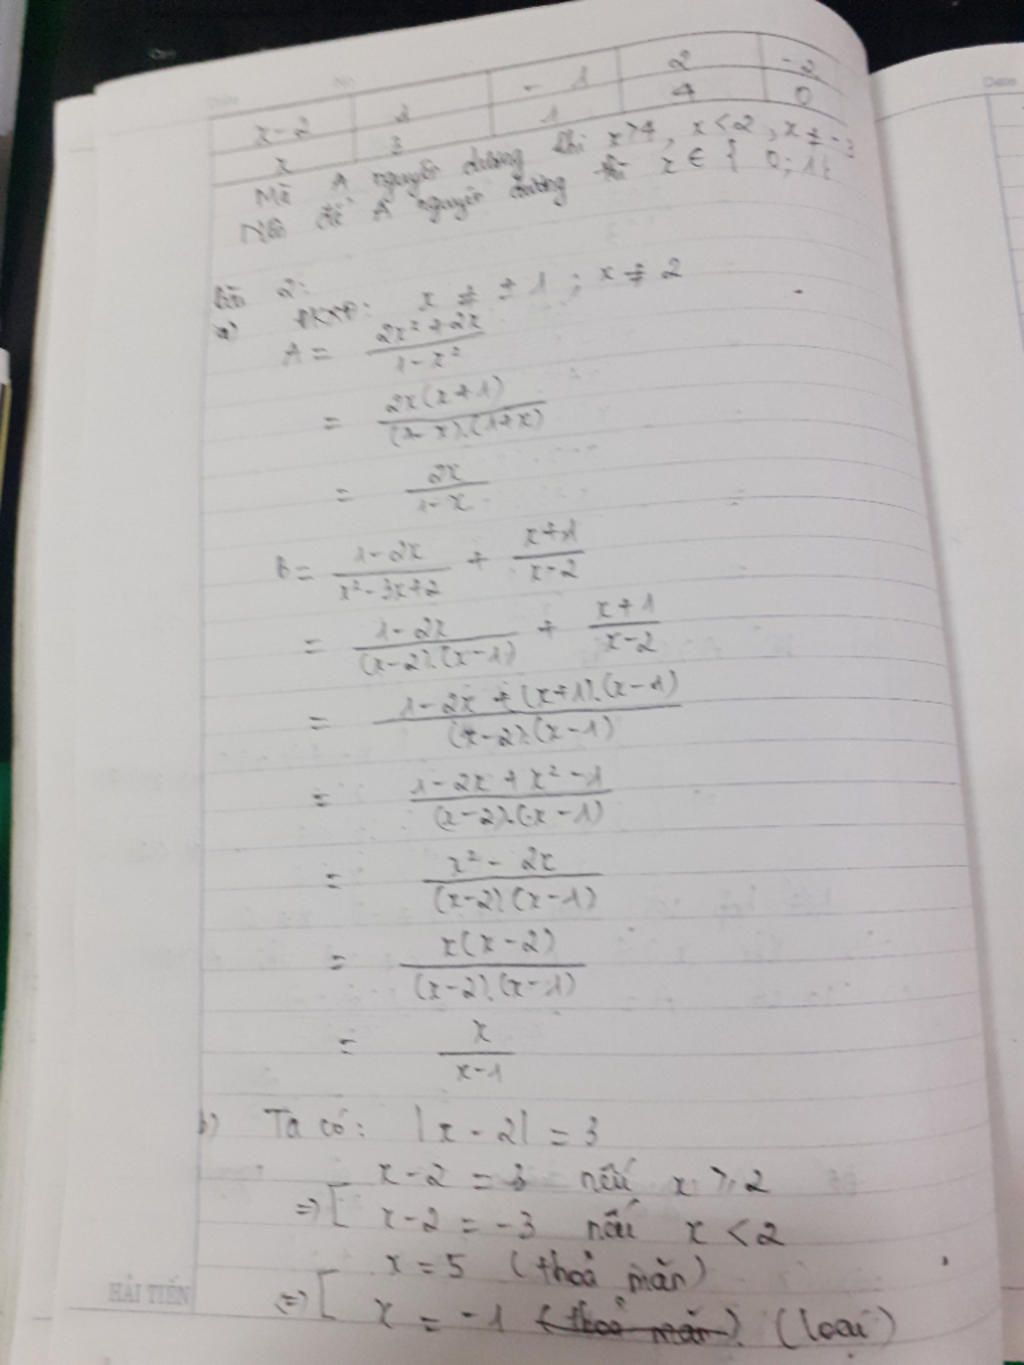 x-2 | 1 | -1 | 2 | -2
x | 3 | 1 | 4 | 0
Mà A nguyên dương khi x>4, x<2, x≠-3
Nên để A nguyên dương thì x ∈ { 0; 1}
Bài 2:
a) ĐKXĐ: x ≠ ±1 ; x ≠ 2
A = (2x²+2x)/(1-x²)
= (2x(x+1))/((1-x).(1+x))
= 2x/(1-x)
B = (1-2x)/(x²-3x+2) + (x+1)/(x-2)
= (1-2x)/((x-2).(x-1)) + (x+1)/(x-2)
= (1-2x+(x+1).(x-1))/((x-2).(x-1))
= (1-2x+x²-1)/((x-2).(x-1))
= (x²-2x)/((x-2).(x-1))
= (x(x-2))/((x-2).(x-1))
= x/(x-1)
b) Ta có: |x-2| = 3
=> [ x-2 = 3 nếu x ≥ 2
x-2 = -3 nếu x < 2
<=> [ x = 5 (thoả mãn)
x = -1 (thoả mãn). (loại)
HẢI TIẾN